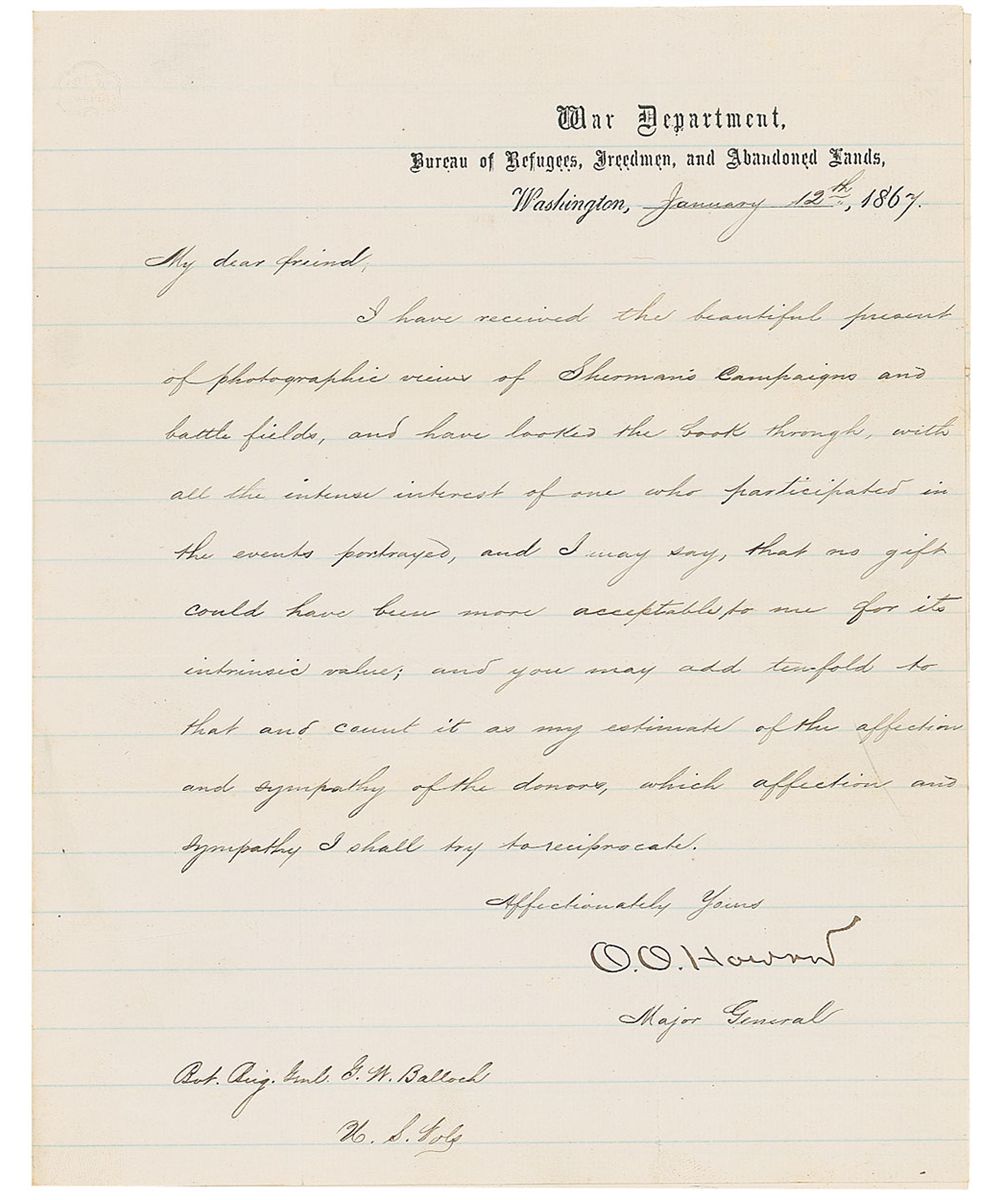 War Department,
Bureau of Refugees, Freedmen, and Abandoned Lands,
Washington, January 12th, 1867.
My dear freind,
I have received the beautiful present
of photographic views of Sherman's Campaigns and
battle fields, and have looked the book through, with
all the intense interest of one who participated in
the events portrayed, and I may say, that no gift
could have been more acceptable to me for its
intrinsic value; and you may add ten-fold to
that and count it as my estimate of the affection
and sympathy of the donors, which affection and
sympathy I shall try to reciprocate.
Affectionately Yours
O.O. Howard
Major General
Bvt. Brig. Genl. G. W. Balloch
U. S. Vols